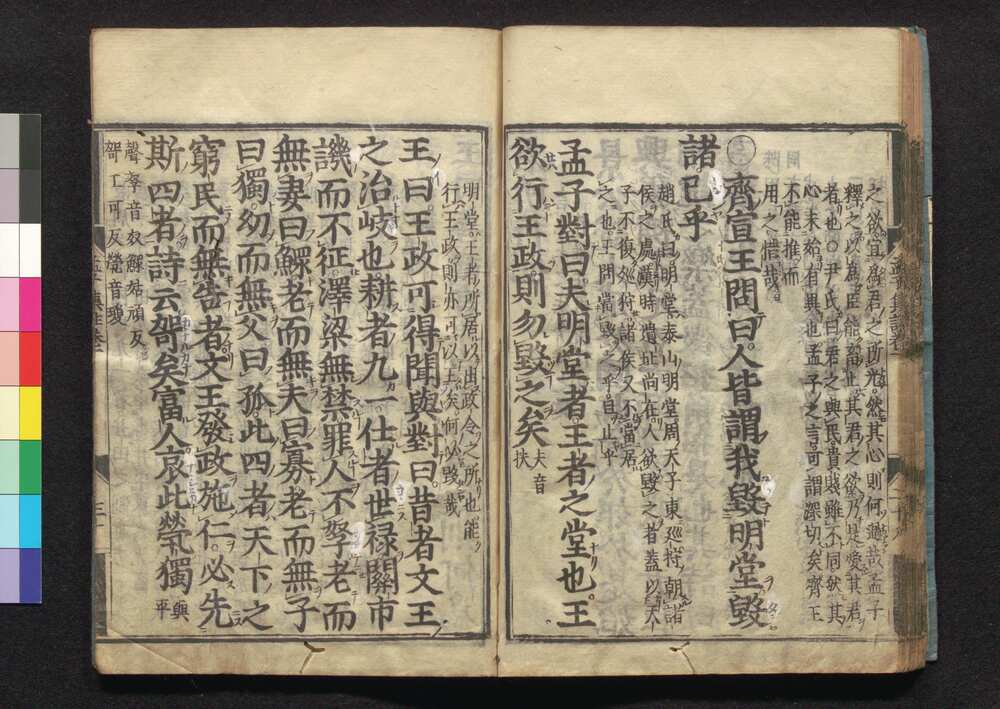 之欲宜爲君之所尤然其心則何過哉孟子
釋之以爲臣能畜止其君之欲乃是愛其君
者也○尹氏曰君之與民貴賤雖不同然其
心未始有異也孟子之言可謂深切矣齊王
不能推而
用之惜哉
○齊宣王問曰人皆謂我毀明堂毀
諸已乎
趙氏曰明堂泰山明堂周天子東巡狩朝諸
侯之處漢時遺址尚在人欲毀之者蓋以天
子不復巡狩諸侯又不當居
之也王問當毀之乎且止乎
孟子對曰夫明堂者王者之堂也王
欲行王政則勿毀之矣
夫音
扶
明堂王者所居以出政令之所也能
行王政則亦可以王矣何必毀哉
王曰王政可得聞與對曰昔者文王
之治岐也耕者九一仕者世祿關市
譏而不征澤梁無禁罪人不孥老而
無妻曰鰥老而無夫曰寡老而無子
曰獨幼而無父曰孤此四者天下之
窮民而無告者文王發政施仁必先
斯四者詩云哿矣富人哀此煢獨
與
平
聲孥音奴鰥姑頑反
哿工可反煢音瓊